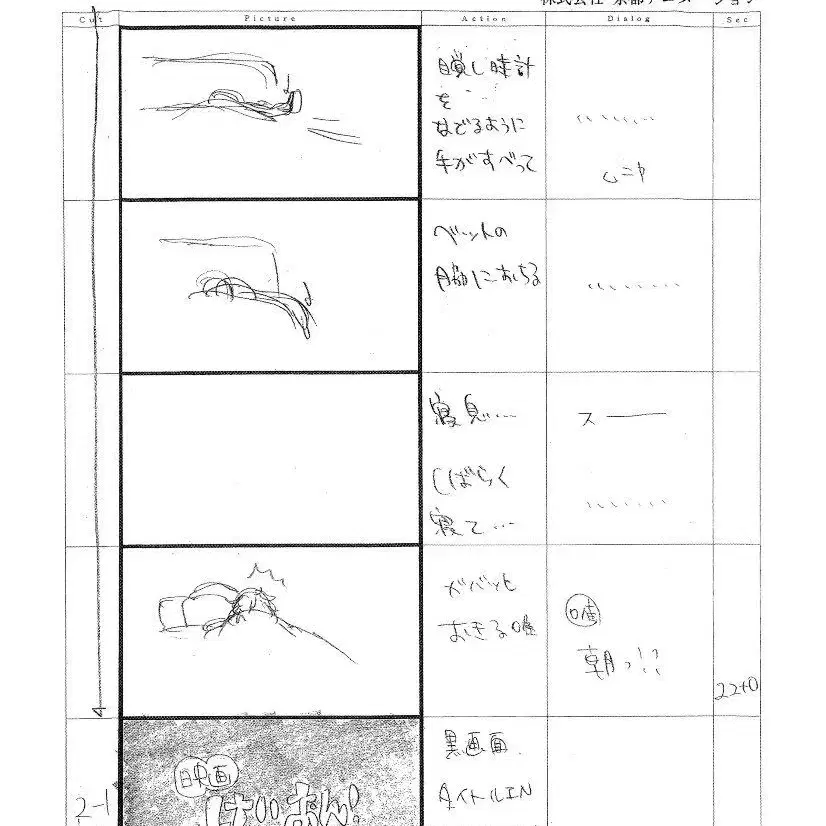 株式会社 京都アニメーション
Cut Picture Action Dialog Sec
目覚し時計
を
なでるように
手がすべって
ムニャ
ベットの
脇におちる
寝息…
スー
しばらく
寝て…
ガバッと
おきる唯
唯
朝っ!!
22+0
2-1
黒画面
タイトルIN
映画
けいおん!